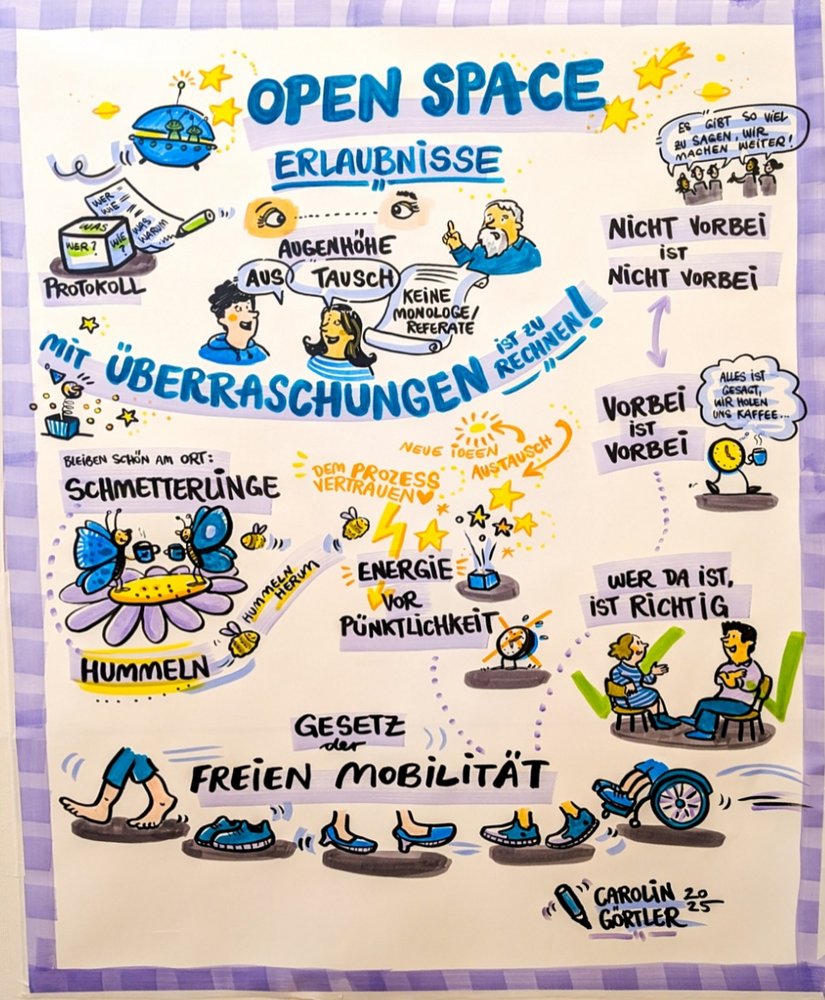 OPEN SPACE
ERLAUBNISSE
"ES GIBT SO VIEL
ZU SAGEN, WIR
MACHEN WEITER!
WER
WIE
WAS
WARUM
WAS
WER?
WIE?
PROTOKOLL
AUGENHÖHE
AUS TAUSCH
KEINE
MONOLOGE/
REFERATE
NICHT VORBEI
IST
NICHT VORBEI
MIT ÜBERRASCHUNGEN IST ZU
RECHNEN!
ALLES IST
GESAGT,
WIR HOLEN
UNS KAFFEE...
VORBEI
IST
VORBEI
BLEIBEN SCHÖN AM ORT:
SCHMETTERLINGE
HUMMELN
HERUM
HUMMELN
NEUE IDEEN
AUSTAUSCH
DEM PROZESS
VERTRAUEN
ENERGIE
VOR
PÜNKTLICHKEIT
WER DA IST,
IST RICHTIG
GESETZ
der
FREIEN MOBILITÄT
CAROLIN 20
GÖRTLER 25